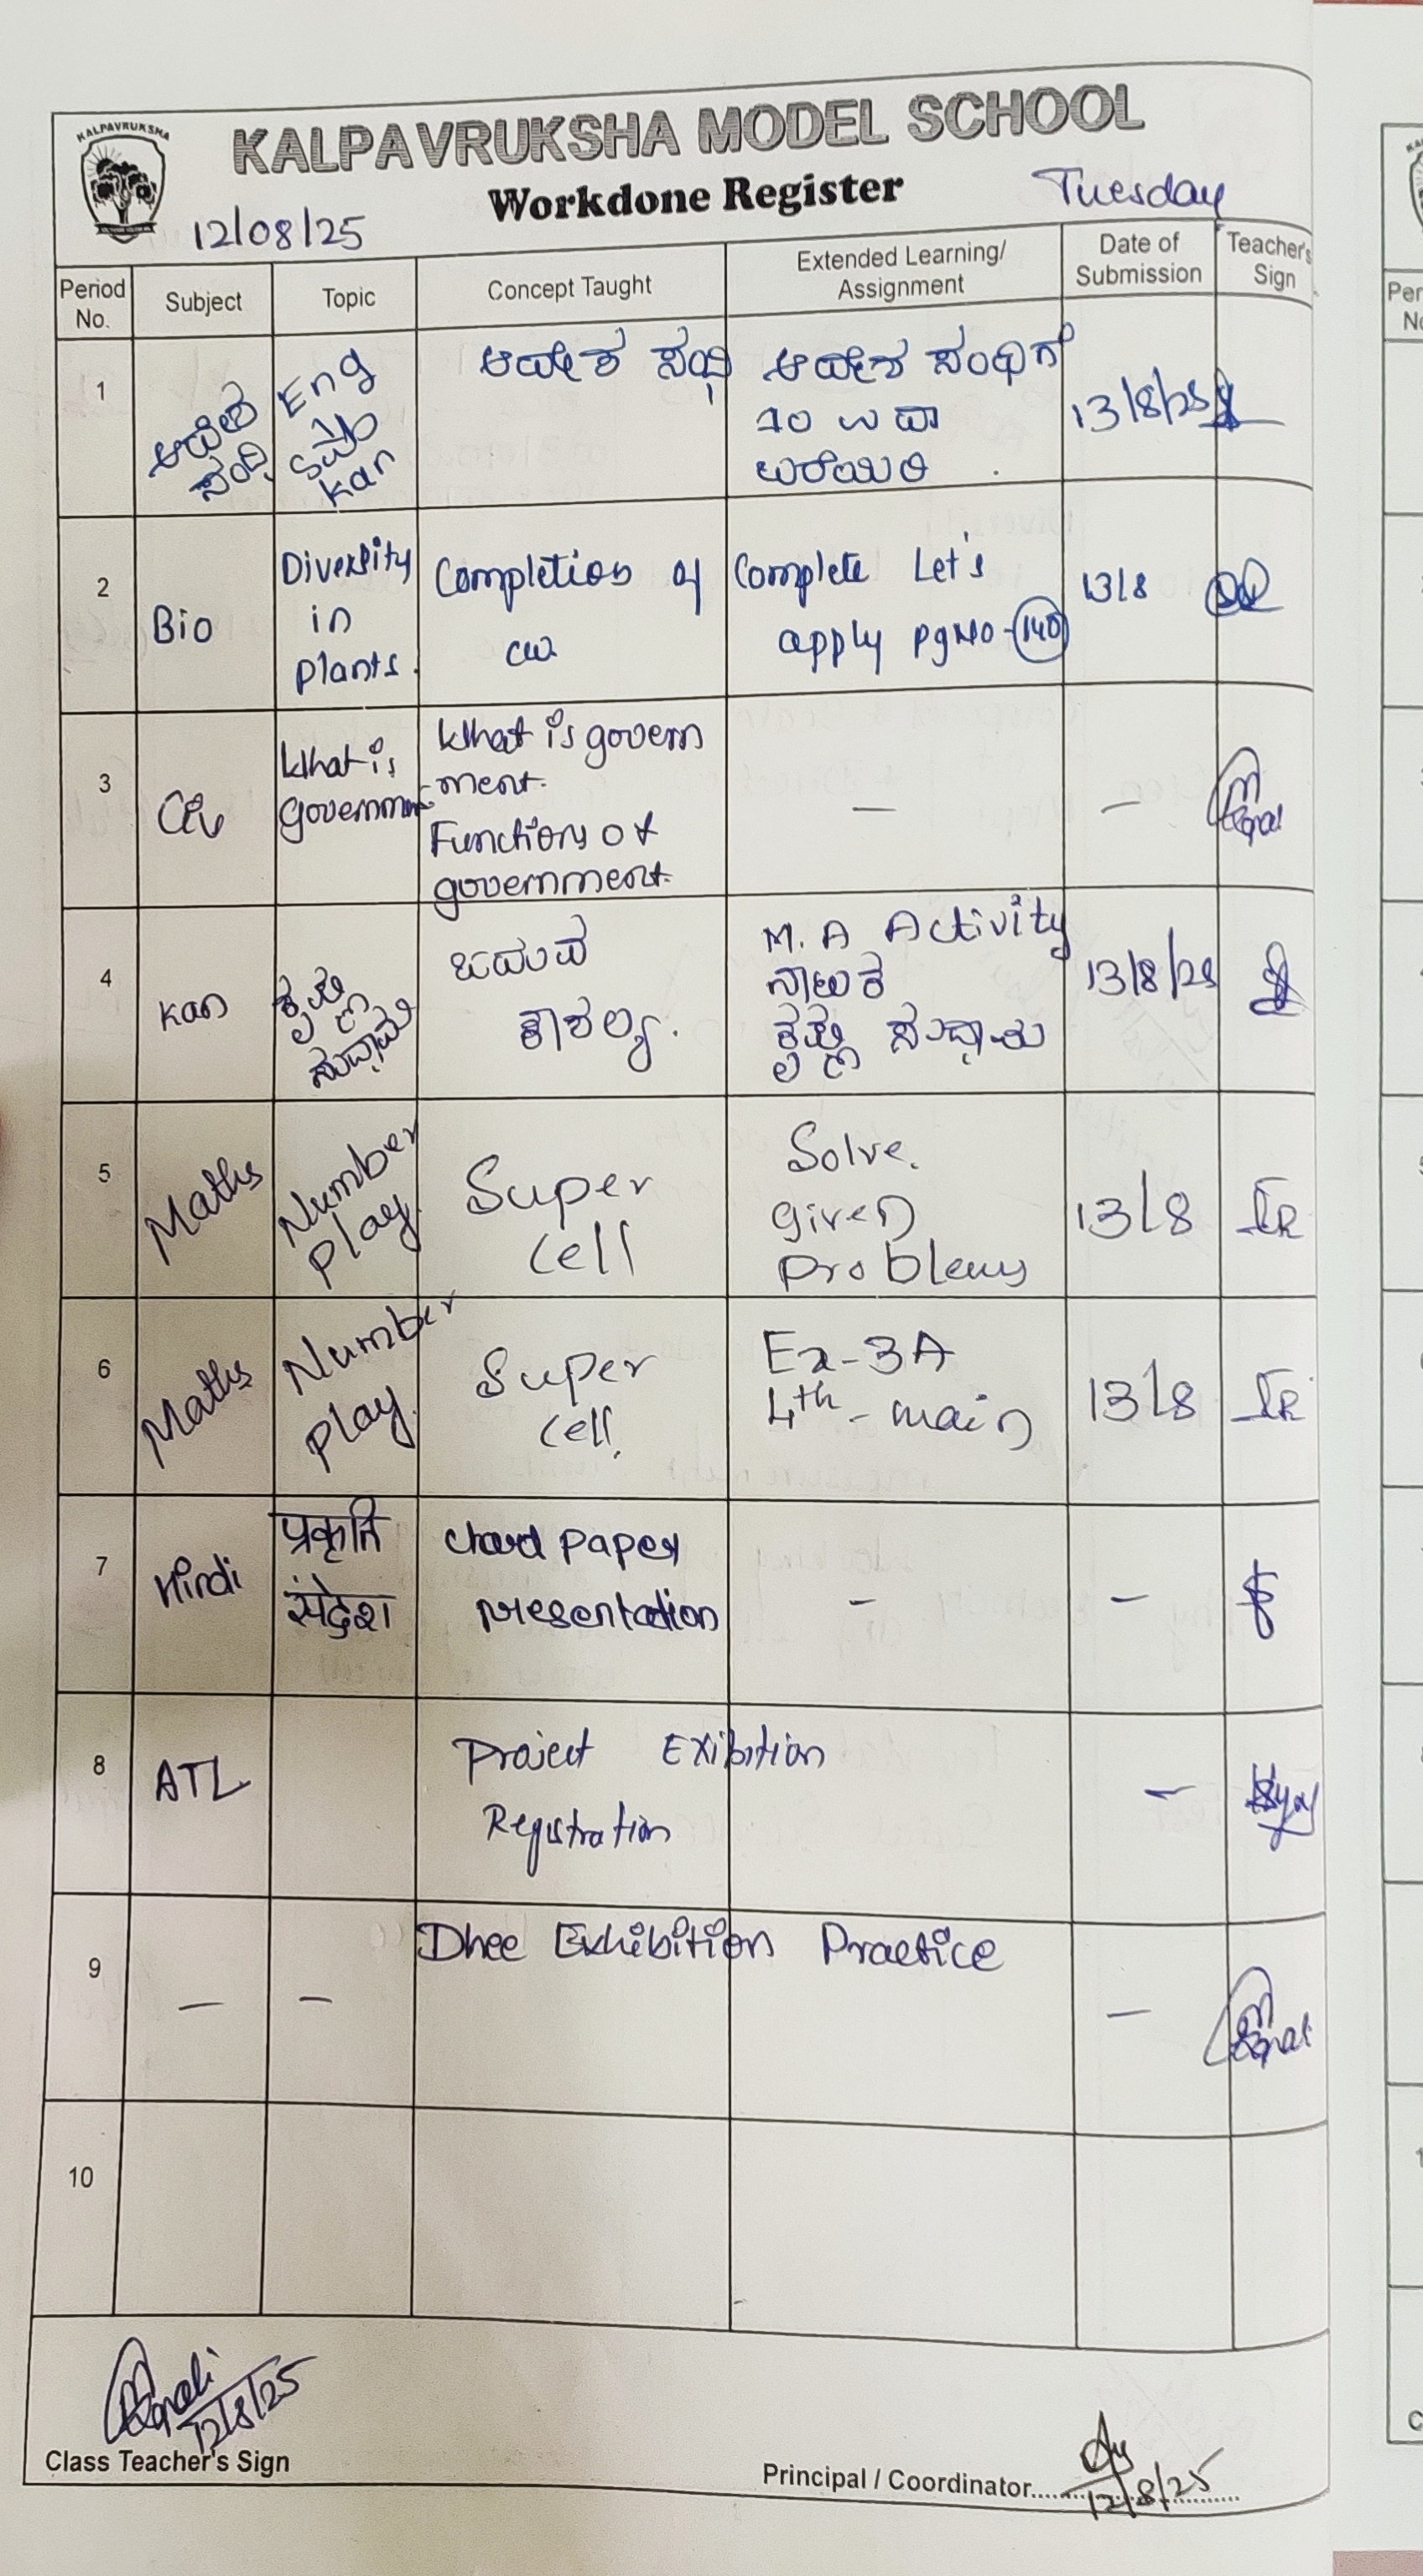 KALPAVRUKSHA
KALPAVRUKSHA MODEL SCHOOL
Workdone Register
Tuesday
12/08/25
Period No.
Subject
Topic
Concept Taught
Extended Learning/
Assignment
Date of
Submission
Teacher's
Sign
1
ಆದೇಶ
ಸಂಧಿ
Eng
Kan
ಆದೇಶ ಸಂಧಿ
ಆದೇಶ ಸಂಧಿಗೆ
10 ಉದಾ
ಬರೆಯಿರಿ
13/8/25
2
Bio
Diversity
in
plants.
Completion of
cw
Complete Let's
apply pg No - 140
13/8
3
Civ
What is
government
What is govern
ment.
Functions of
government.
—
—
4
Kan
ಕೃಷ್ಣ
ಸುಧಾಮ
ಬರುವ
ಕೌಶಲ್ಯ.
M.A Activity
ನಾಟಕ
ಕೃಷ್ಣ ಸುಧಾಮ
13/8/25
5
Maths
Number
play.
Super
cell
Solve.
given
problems
13/8
6
Maths
Number
play.
Super
cell.
Ex-3A
4th - main
13/8
7
Hindi
प्रकृति
संदेश
chard paper
presentation
-
-
8
ATL
Project Exibition
Registration
-
9
-
-
Dhee Exhibition Practice
-
10
12/8/25
Class Teacher's Sign
Principal / Coordinator
12/8/25